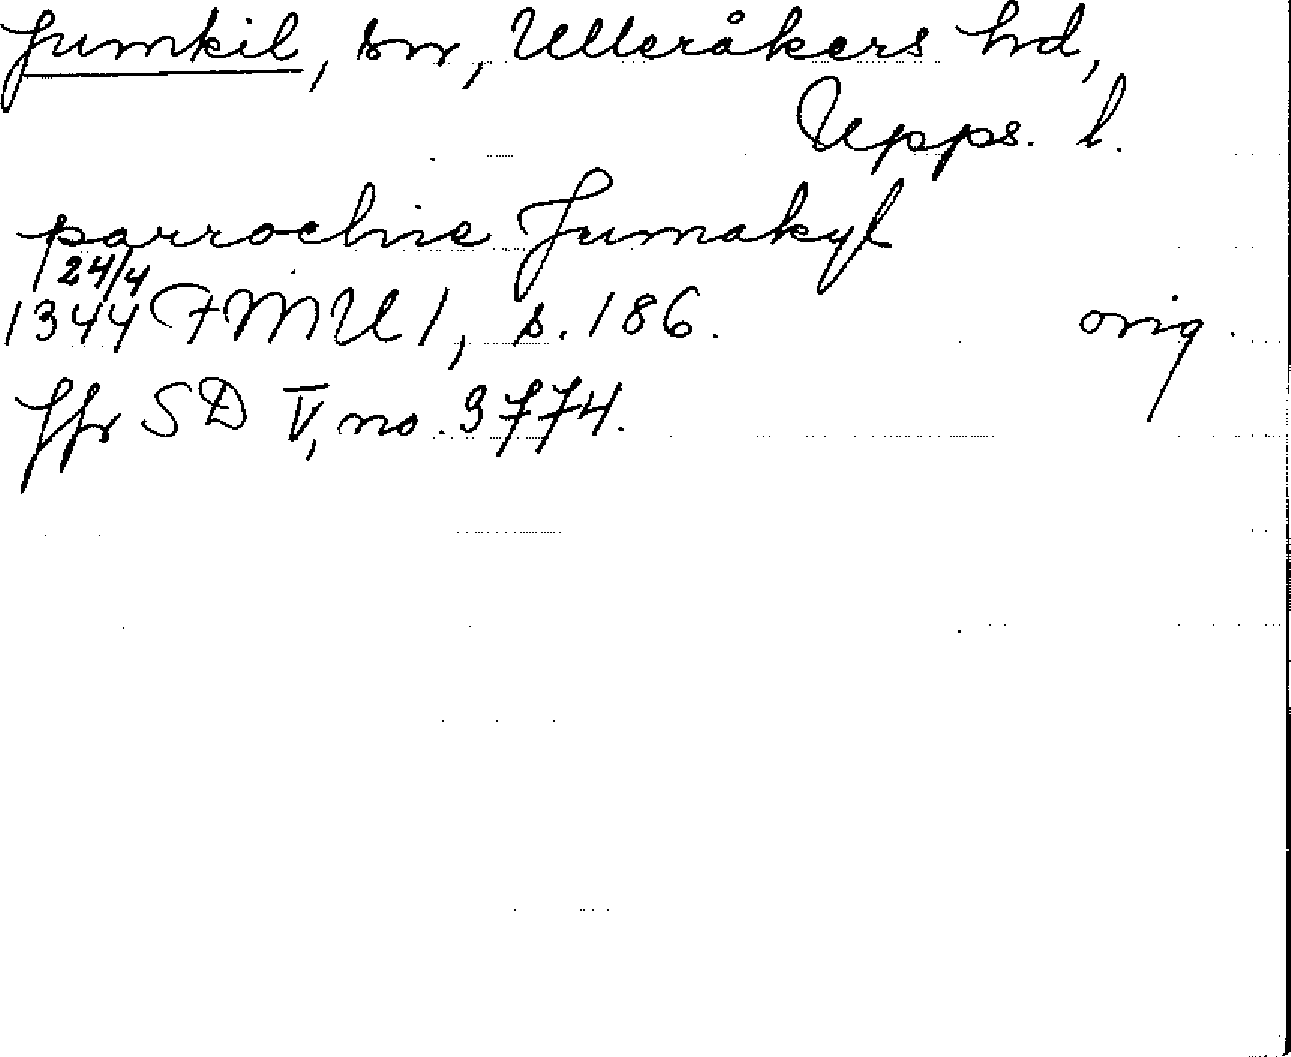 Jumkil, sn, Ulleråkers hd,
Upps. l.
parrochie Jumakyl
24/4
1344 FMU 1, s. 186. orig.
Jfr SD V, no. 3774.